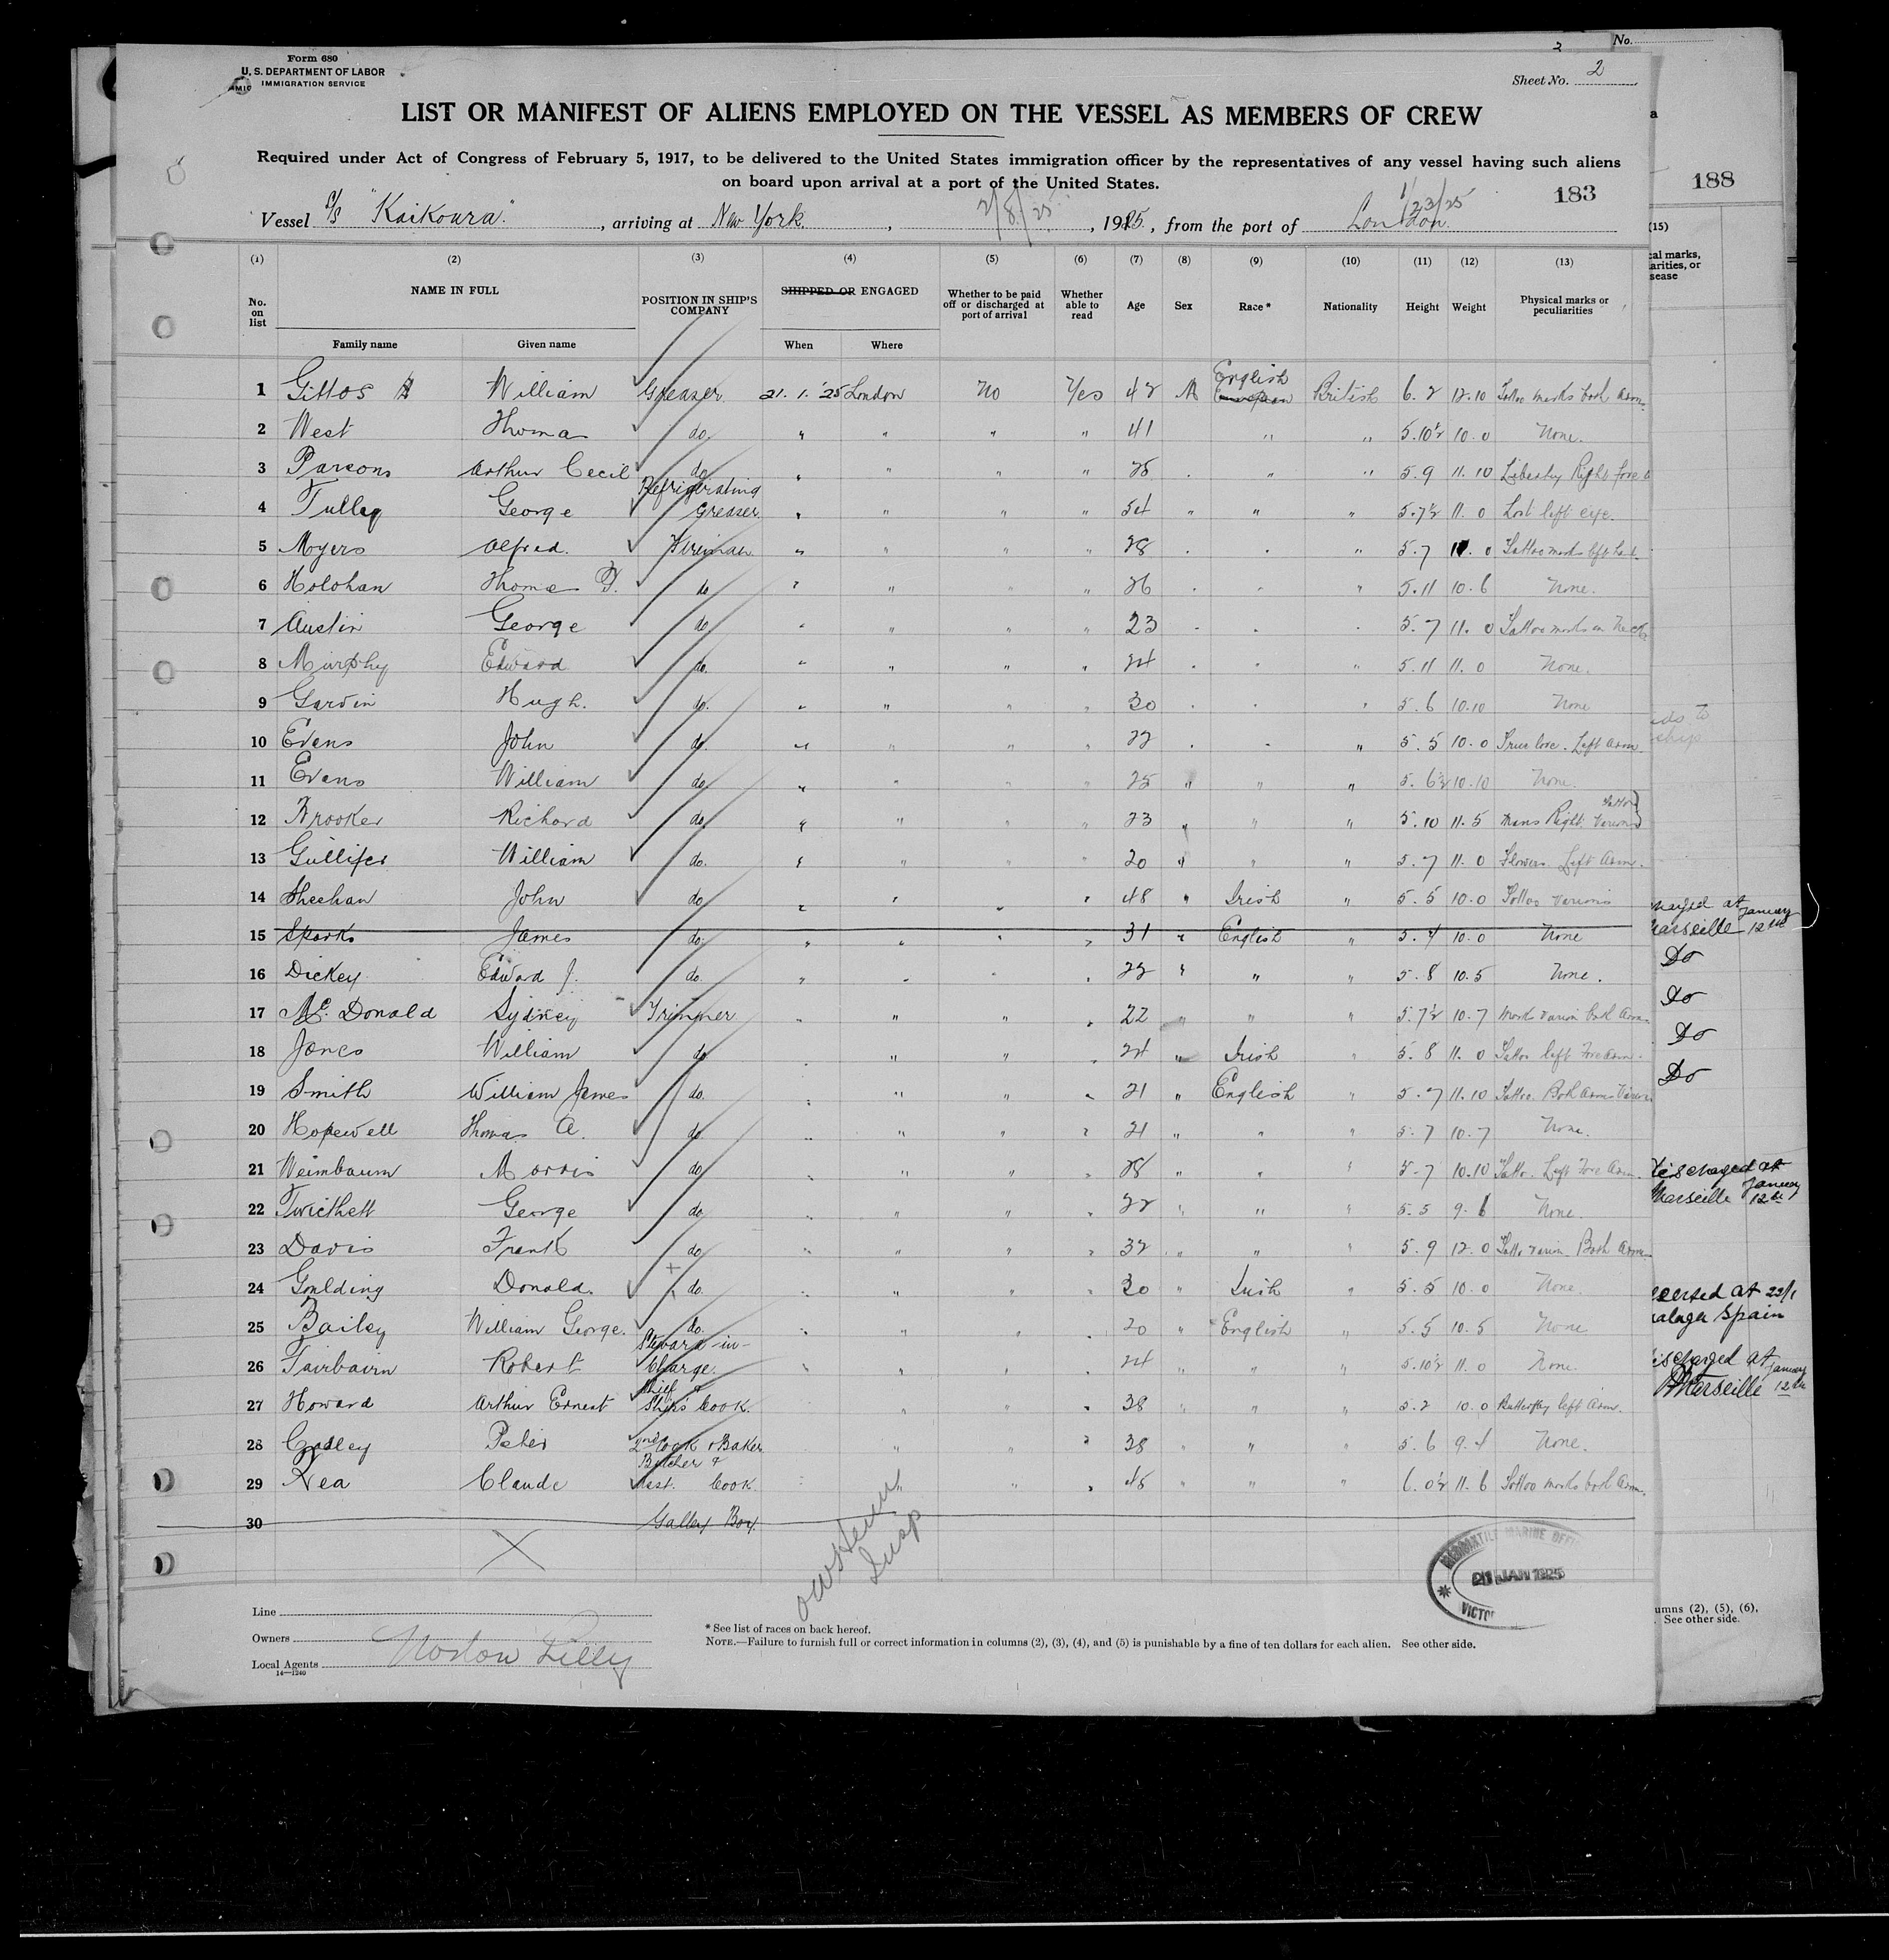 Form 680
U. S. DEPARTMENT OF LABOR
IMMIGRATION SERVICE
2 No.
Sheet No. 2
LIST OR MANIFEST OF ALIENS EMPLOYED ON THE VESSEL AS MEMBERS OF CREW
Required under Act of Congress of February 5, 1917, to be delivered to the United States immigration officer by the representatives of any vessel having such aliens
on board upon arrival at a port of the United States.
183
188
Vessel S/S "Kaikoura", arriving at New York, 2/8/25, 1925, from the port of London 1/23/25
(1) (2) (3) (4) (5) (6) (7) (8) (9) (10) (11) (12) (13) (15)
No. on list NAME IN FULL POSITION IN SHIP'S COMPANY SHIPPED OR ENGAGED Whether to be paid off or discharged at port of arrival Whether able to read Age Sex Race * Nationality Height Weight Physical marks or peculiarities
Family name Given name When Where
1 Gittos William Greaser 21. 1. '25 London No Yes 42 M English British 6. 2 12.10 Tattoo marks both Arms
2 West Thomas do. " " " " 41 " " 5.10½ 10. 0 None.
3 Parsons Arthur Cecil do " " " " 25 " " 5. 9 11. 10 Right fore
4 Tulley George Refrigerating Greaser " " " " 54 " " " 5.7½ 11. 0 Lost left eye.
5 Myers Alfred. Fireman " " " " 28 " " " 5. 7 0 Tattoo marks left
6 Holohan Thomas F. do " " " " 26 " " " 5.11 10. 6 None.
7 Austin George do " " " " 23 " " " 5. 7 11. 0 Tattoo marks on Neck
8 Murphy Edward do. " " " " 24 " " " 5. 11 11. 0 None.
9 Garvin Hugh. do. " " " " 30 " " " 5. 6 10.10 None
10 Evans John do. " " " " 22 " " " 5. 5 10. 0 True love. Left Arm
11 Evans William do. " " " " 25 " " " 5. 6½ 10.10 None.
12 Brooker Richard do. " " " " 23 " " " 5. 10 11. 5 Right. Various Tattoo
13 Gulliford William do. " " " " 20 " " " 5. 7 11. 0 Flowers Left Arm.
14 Sheehan John do " " " " 48 " Irish " 5. 5 10.0 Tattoo various
15 Sparks James do. " " " " 31 " English " 5. 4 10. 0 None
16 Dickey Edward J. do. " " " " 22 " " " 5. 8 10.5 None.
17 Mc. Donald Sydney Trimmer " " " " 22 " " " 5.7½ 10. 7 Marks various both Arms
18 Jones William do " " " " 24 " Irish " 5. 8 11. 0 Tattoo left Forearm.
19 Smith William James do. " " " " 21 " English " 5. 7 11. 10 Tattoo. Both Arms Various
20 Hopewell Thomas A. do. " " " " 21 " " " 5. 7 10. 7 None.
21 Weimbaum Morris do " " " " 28 " " " 5. 7 10.10 Tattoo. Left Fore Arm.
22 Twitchett George do " " " " 22 " " " 5. 5 9. 6 None.
23 Davis Frank do " " " " 32 " " " 5. 9 12. 0 Tattoo various Both Arms
24 Goulding Donald. do. " " " " 30 " Irish " 5. 5 10. 0 None.
25 Bailey William George. do. " " " " 20 " English " 5. 5 10. 5 None
26 Fairbairn Robert Steward-in-Charge. " " " " 24 " " " 5.10½ 11. 0 None.
27 Howard Arthur Ernest Chief & Ships Cook. " " " 38 " " " 5. 2 10. 0 Butterfly left Arm.
28 Peter 2nd Cook & Baker " " " 38 " " " 5. 6 9. 4 None.
29 Rea Claude Butcher & Asst. Cook " " " " 45 " " " 6. 0½ 11. 6 Tattoo marks both Arms.
30 Galley Boy
cal marks,
arities, or
sease
ids to
ship
charged at January
Marseille 12th
Do
Do
Do
Do
Discharged at January
Marseille 12th
Deserted at 22/1
Malaga Spain
Discharged at January
Marseille 12th
Insp
MERCANTILE MARINE OFFI
21 JAN 1925
VICTO
Line
Owners
Local Agents Norton Lilly
14—1240
* See list of races on back hereof.
NOTE.—Failure to furnish full or correct information in columns (2), (3), (4), and (5) is punishable by a fine of ten dollars for each alien. See other side.
umns (2), (5), (6),
. See other side.